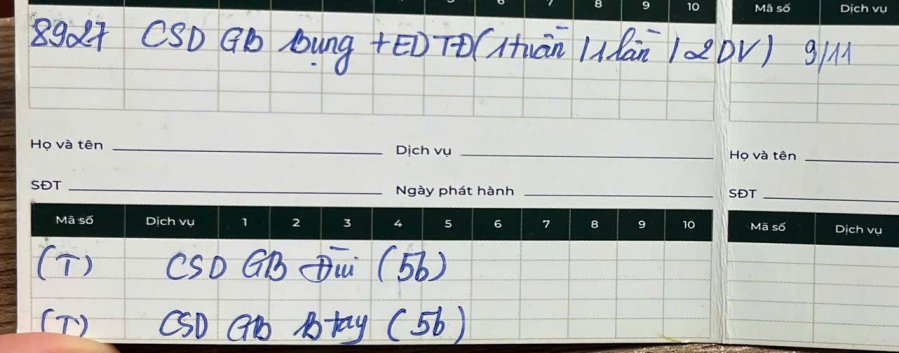 6 7 8 9 10 Mã số Dịch vụ
8927 CSD GB bụng + ED TĐ (1 tuần / 1 lần / 2 DV) 9/11
Họ và tên Dịch vụ Họ và tên
SĐT Ngày phát hành SĐT
Mã số Dịch vụ 1 2 3 4 5 6 7 8 9 10 Mã số Dịch vụ
(T) CSD GB Đùi (5b)
(T) CSD GB B tay (5b)